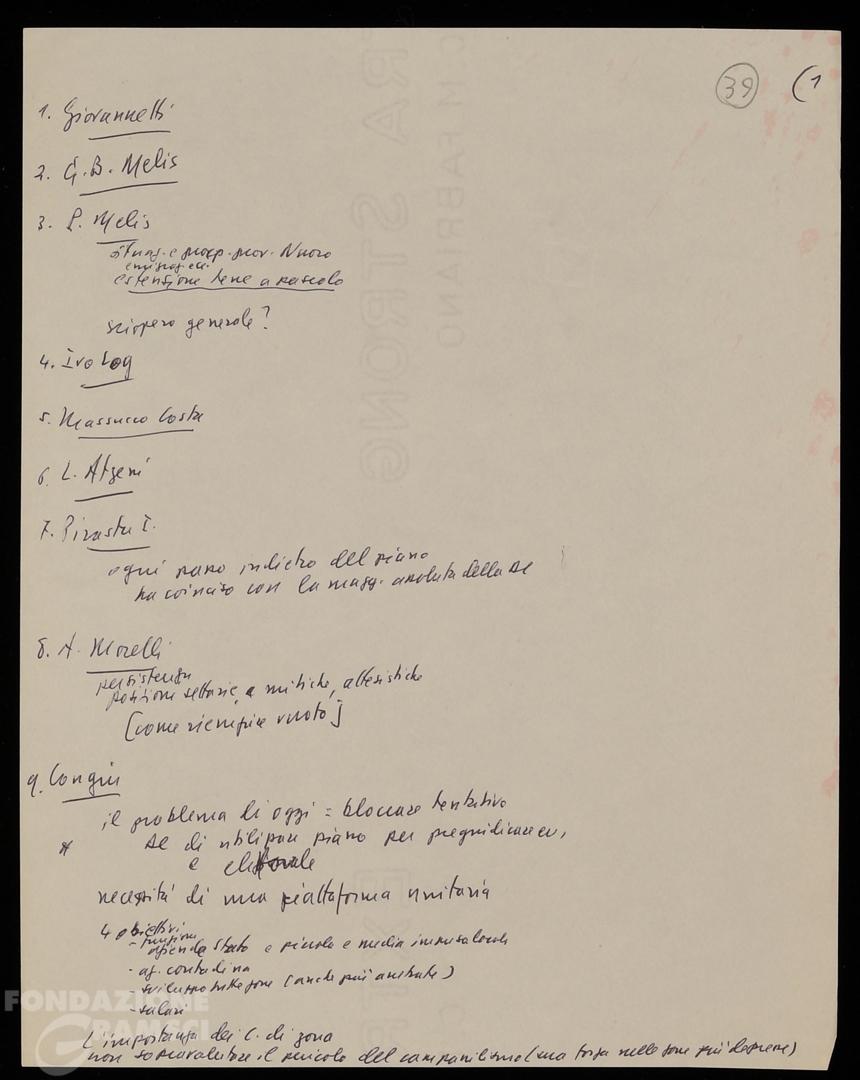 39 (1
1. Giovannetti
2. G.B. Melis
3. P. Melis
situaz. e prosp. prov. Nuoro
emigraz. ecc.
estensione terre a pascolo
sciopero generale?
4. Ivo Log
5. Massucco Costa
6. L. Atzeni
7. Pirastu I.
ogni passo indietro del piano
ha coinciso con la magg. assoluta della DC
8. A. Morelli
persistenza
posizioni settarie, a mitiche, attesistiche
[come riempire vuoto]
9. Congiu
il problema di oggi = bloccare tentativo
* DC di utilizzare piano per pregiudicare
e elettorale
necessità di una piattaforma unitaria
4 obiettivi
- funzione
azienda Stato e piccola e media locale
- az. contadina
- sviluppo tutte zone (anche più arretrate)
- salari
L'importanza dei C. di zona
non sopravalutare il pericolo del campanilismo (una forza nelle zone più depresse)
C.M. FABRIANO
EXTRA STRONG
FONDAZIONE
GRAMSCI